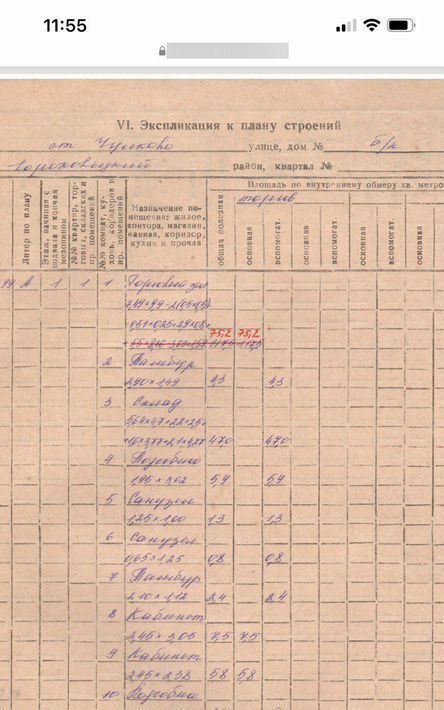 11:55
VI. Экспликация к плану строений
улице, дом № б/н
Гороховецкий район, квартал №
Литер по плану
Этаж, начиная с подвала и кончая мезонином
№№ квартир, торговых, складских и пр. помещений
№№ комнат, кухонь, коридоров и пр. помещений
Назначение помещения: жилое, контора, магазин, ванная, коридор, кухня и прочая
Площадь по внутреннему обмеру кв. метро
торгов
общая полезная
основная
вспомогат.
основная
вспомогат.
основная
вспомогат.
основная
А 1 1 1 Торговый зал
75,2 75,2
2 Тамбур
2,90×1,49 4,3 4,3
3 Склад
47,0 47,0
4 Подсобное
1,95×3,02 5,9 5,9
5 Санузел
1,25×1,00 1,3 1,3
6 Санузел
0,65×1,25 0,8 0,8
7 Тамбур
2,10×1,12 2,4 2,4
8 Кабинет
2,45×3,05 7,5 7,5
9 Кабинет
2,45×2,38 5,8 5,8
10 Подсобное